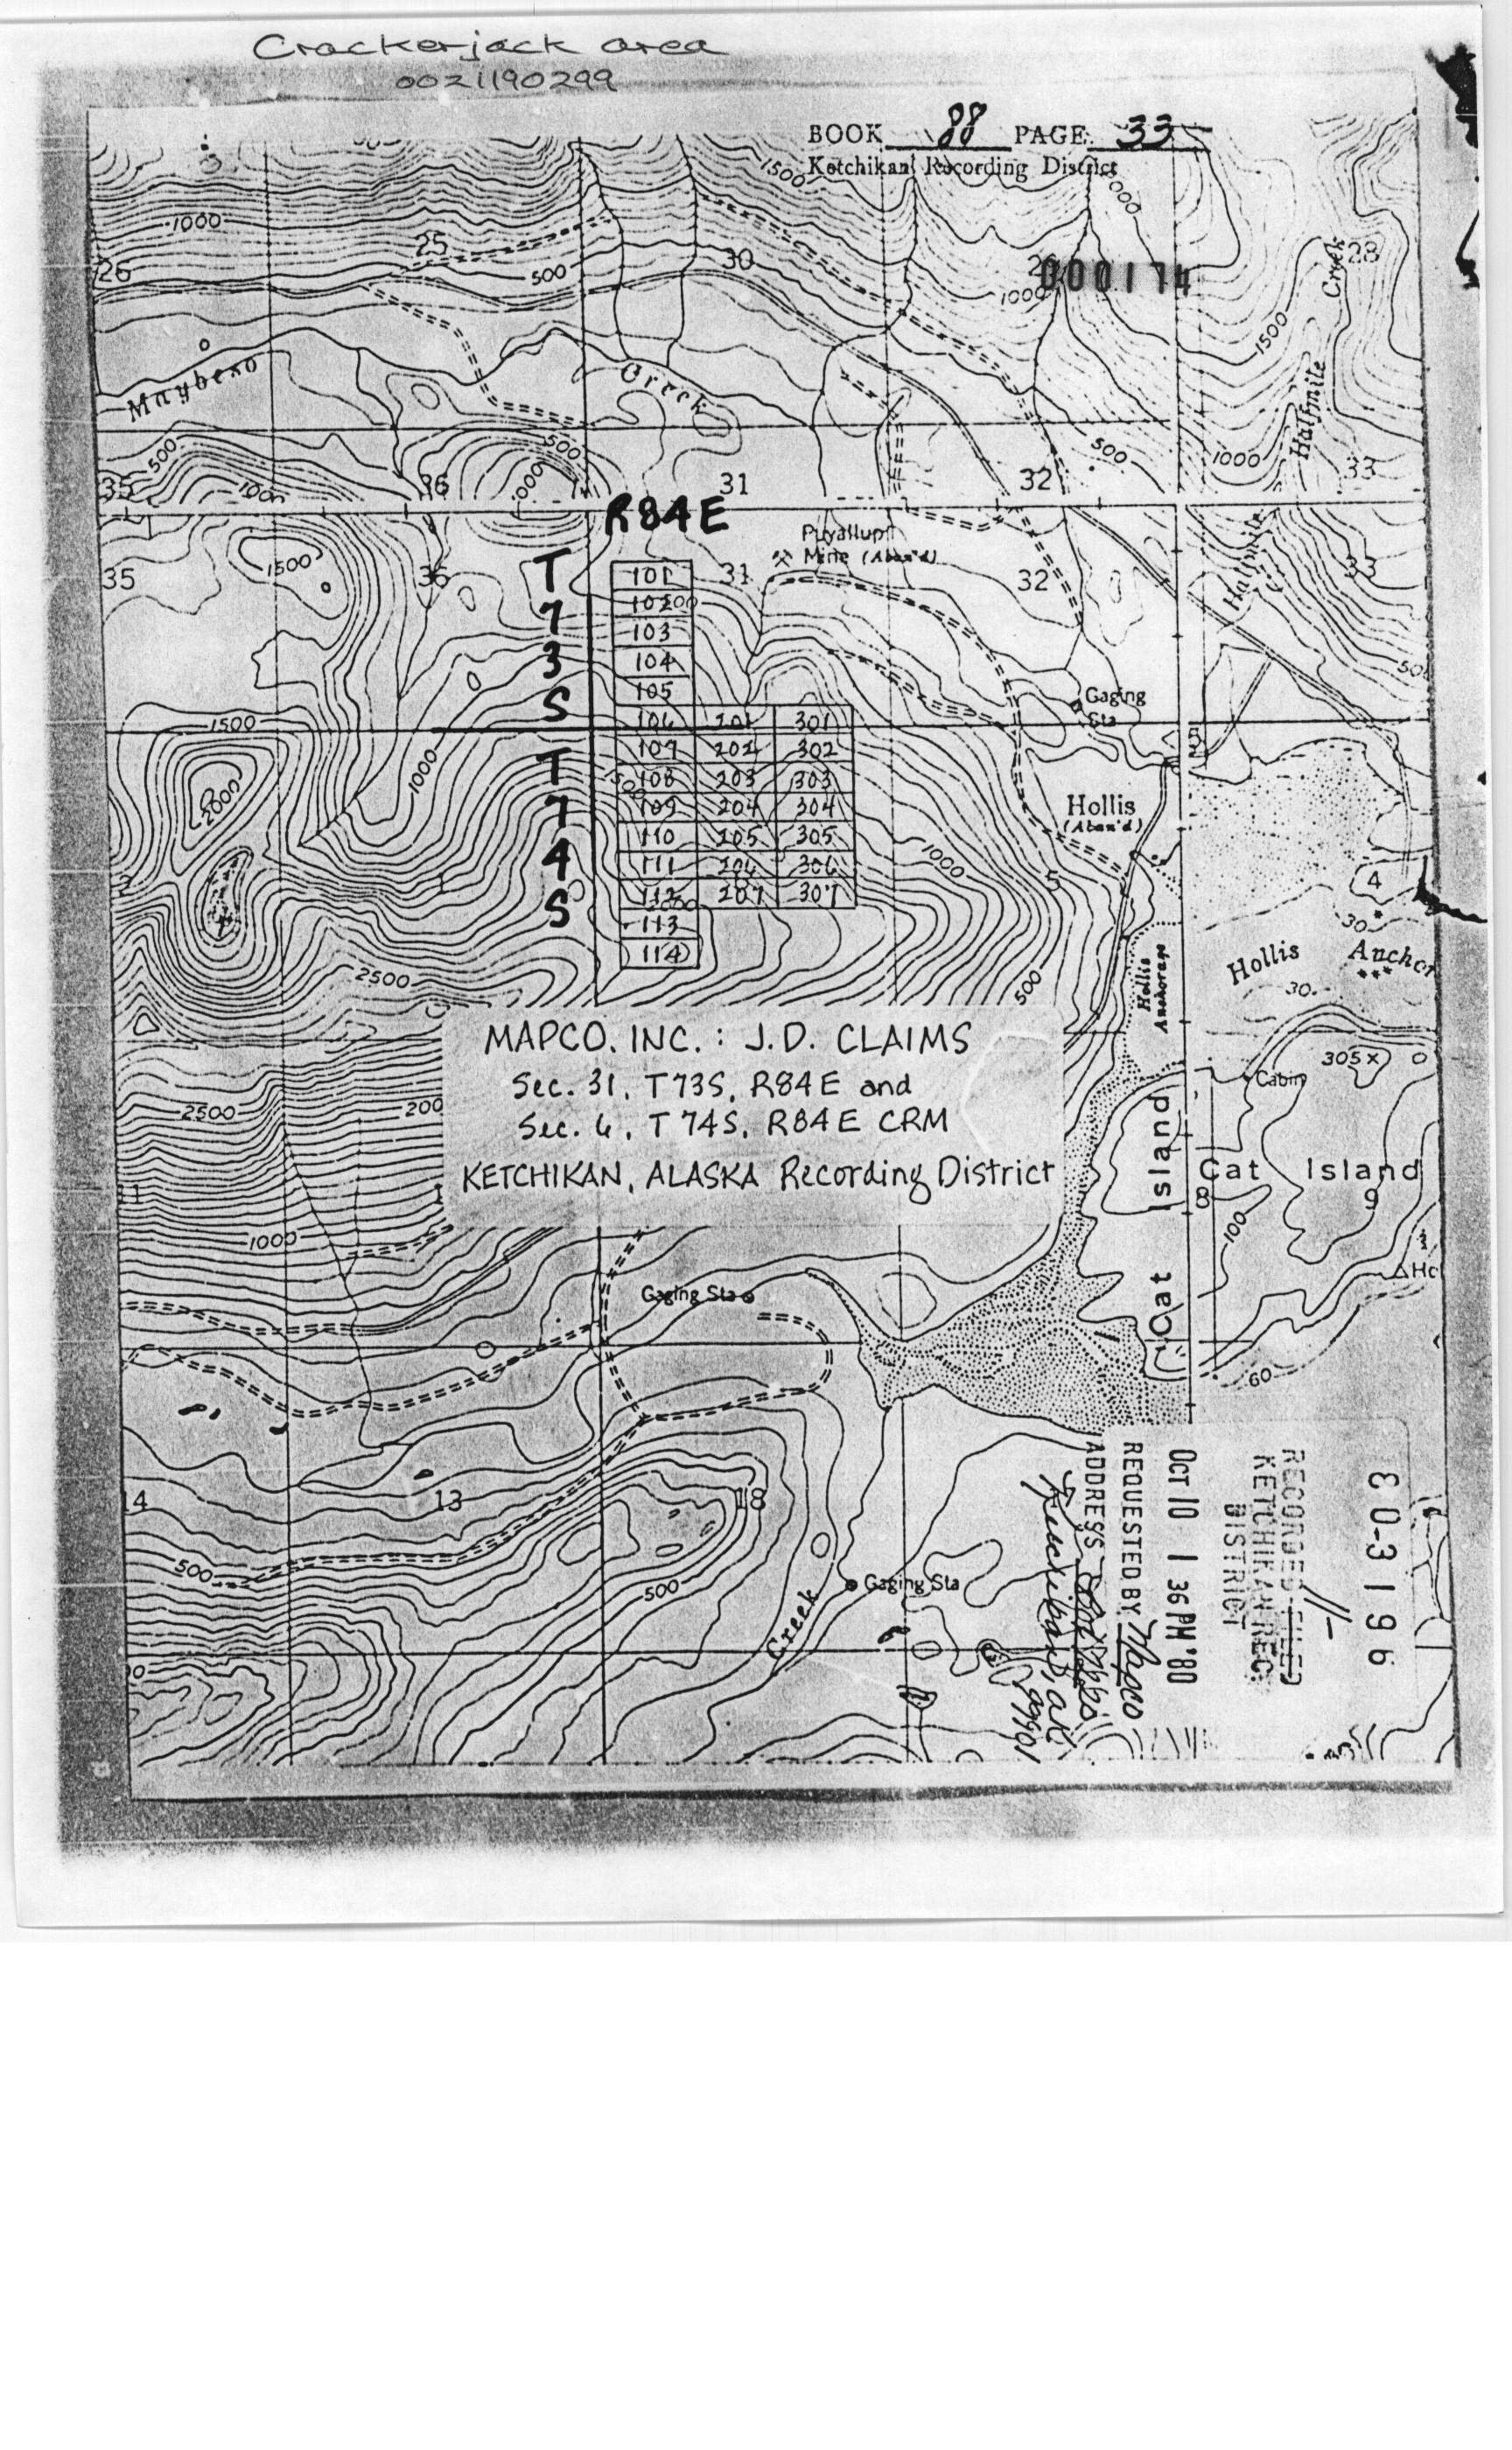 Crackerjack area
0021190299
BOOK 88 PAGE 33
Ketchikan Recording District
1500
1000
1000
25
26
500
30
000174
1000
28
Creek
1500
Maybeso
Creek
Halfmile
500
500
500
1000
35
1000
36
31
32
33
R84E
Puyallup
Mine (Aban'd)
35
1500
36
31
32
33
T
7
3
S
101
102
103
104
105
106 201 301
107 202 302
108 203 303
109 204 304
110 205 305
111 206 306
112 207 307
113
114
T
7
4
S
Gaging
Sta
1500
1000
2000
Hollis
(Aban'd)
1000
5
4
30
Hollis Anchor
Hollis
Anchorage
30
2500
500
MAPCO, INC. : J.D. CLAIMS
Sec. 31, T73S, R84E and
Sec. 6, T74S, R84E CRM
KETCHIKAN, ALASKA Recording District
305
Cabin
2500
200
Cat Island
Cat Island
8
9
100
1000
Gaging Sta
60
14
13
18
500
500
Gaging Sta
Creek
80-3196
RECORDED-FILED
KETCHIKAN REC.
DISTRICT
OCT 10 1 36 PM '80
REQUESTED BY Mapco
ADDRESS
Ketchikan, ak
99901